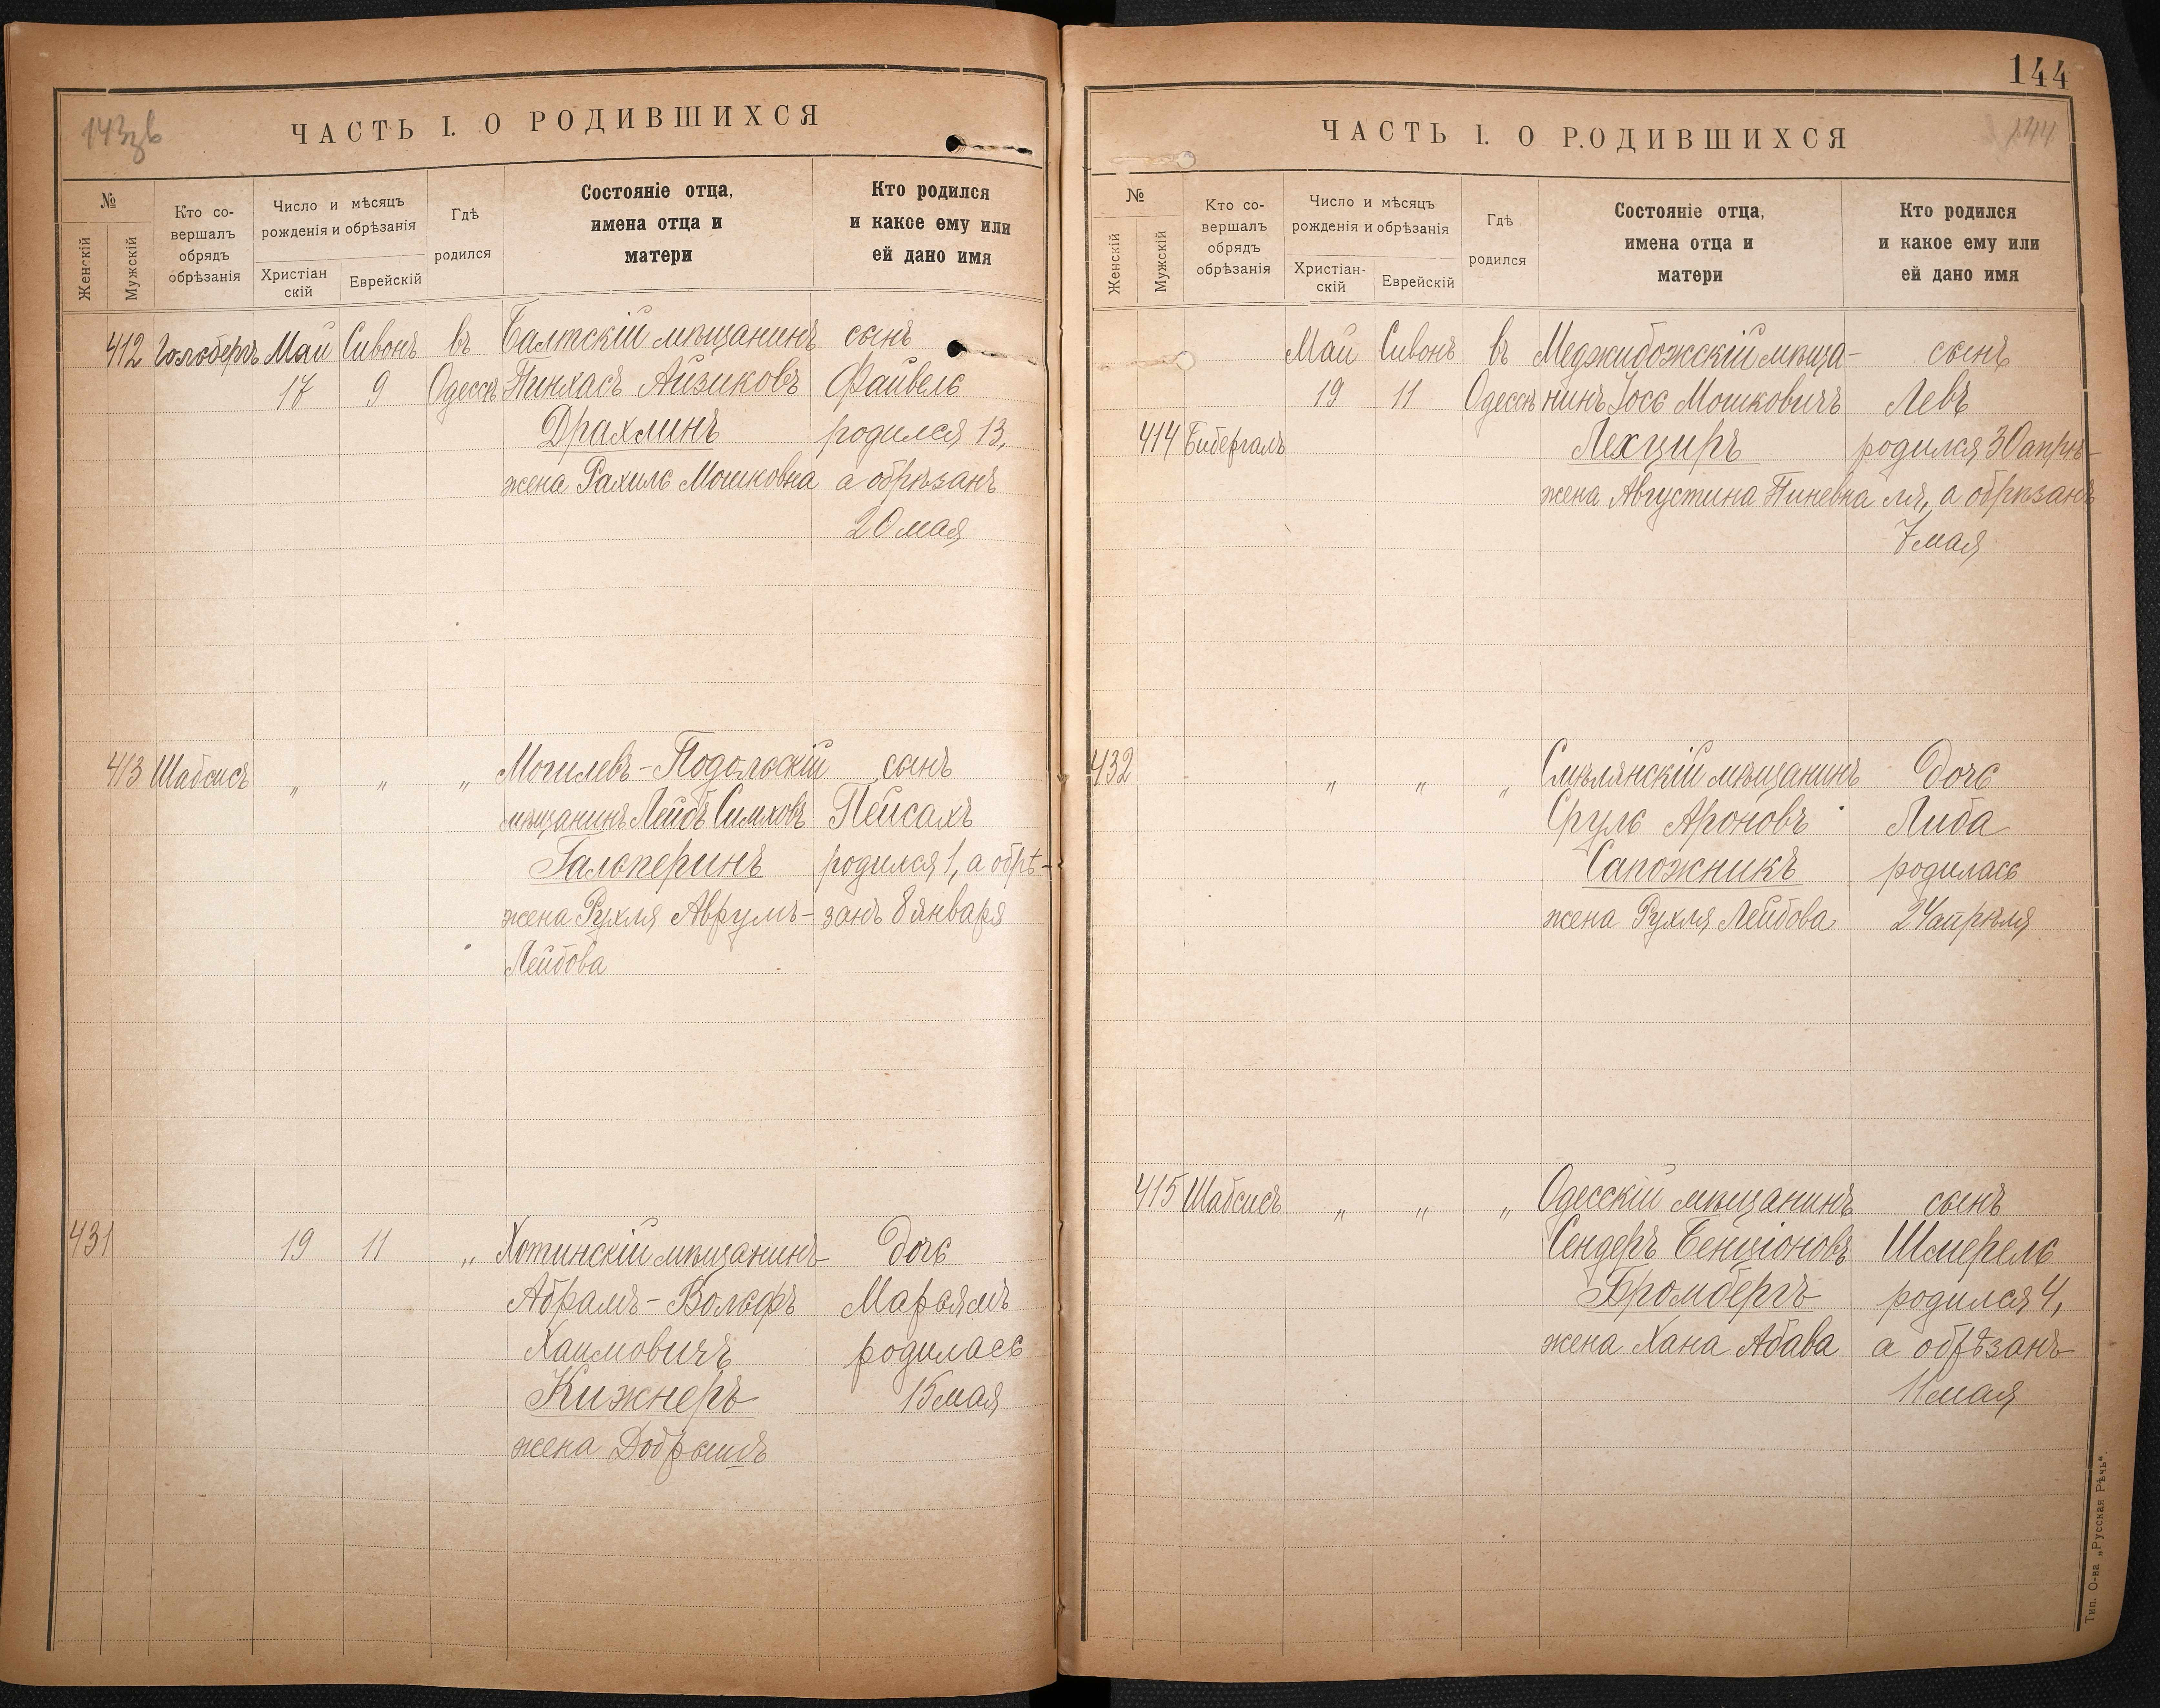 143зв
ЧАСТЬ I. О РОДИВШИХСЯ
№
Женскій
Мужскій
Кто со-
вершалъ
обрядъ
обрѣзанія
Число и мѣсяцъ
рожденія и обрѣзанія
Христіан
скій
Еврейскій
Гдѣ
родился
Состояніе отца,
имена отца и
матери
Кто родился
и какое ему или
ей дано имя
412 Гольдбергъ Май Сивонъ въ Балтскій мѣщанинъ сынъ
17 9 Одессѣ Пинхасъ Айзиковъ Файвель
Драхлинъ родился 13,
жена Рахиль Мошковна а обрѣзанъ
20 мая
413 Шабсисъ „ „ „ Могилевъ-Подольскій сынъ
мѣщанинъ Лейбъ Симховъ Пейсахъ
Гальперинъ родился 1, а обрѣ-
жена Рухля Аврумъ- занъ 8 января
Лейбова
431 19 11 „ Хотинскій мѣщанинъ дочь
Абрамъ-Вольфъ Марьямъ
Хаимовичъ родилась
Кижнеръ 15 мая
жена Добрышъ
144
ЧАСТЬ I. О РОДИВШИХСЯ
144
№
Женскій
Мужскій
Кто со-
вершалъ
обрядъ
обрѣзанія
Число и мѣсяцъ
рожденія и обрѣзанія
Христіан-
скій
Еврейскій
Гдѣ
родился
Состояніе отца,
имена отца и
матери
Кто родился
и какое ему или
ей дано имя
Май Сивонъ въ Меджибожскій мѣща- сынъ
19 11 Одессѣ нинъ Іось Мошковичъ Левъ
414 Бибергалъ Лехциръ родился 30 апрѣ-
жена Августина Пиневна ля, а обрѣзанъ
7 мая
432 „ „ „ Смѣлянскій мѣщанинъ дочь
Сруль Ароновъ Либа
Сапожникъ родилась
жена Рухля Лейбова 24 апрѣля
415 Шабсисъ „ „ „ Одесскій мѣщанинъ сынъ
Сендеръ Бенціоновъ Шмерель
Бромбергъ родился 4,
жена Хана Абава а обрѣзанъ
11 мая
Тип. О-ва „Русская Рѣчь“.